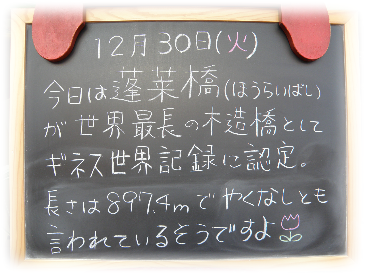 12月30日(火)
今日は蓬莱橋(ほうらいばし)
が世界最長の木造橋として
ギネス世界記録に認定。
長さは897.4mでやくなしとも
言われているそうですよ